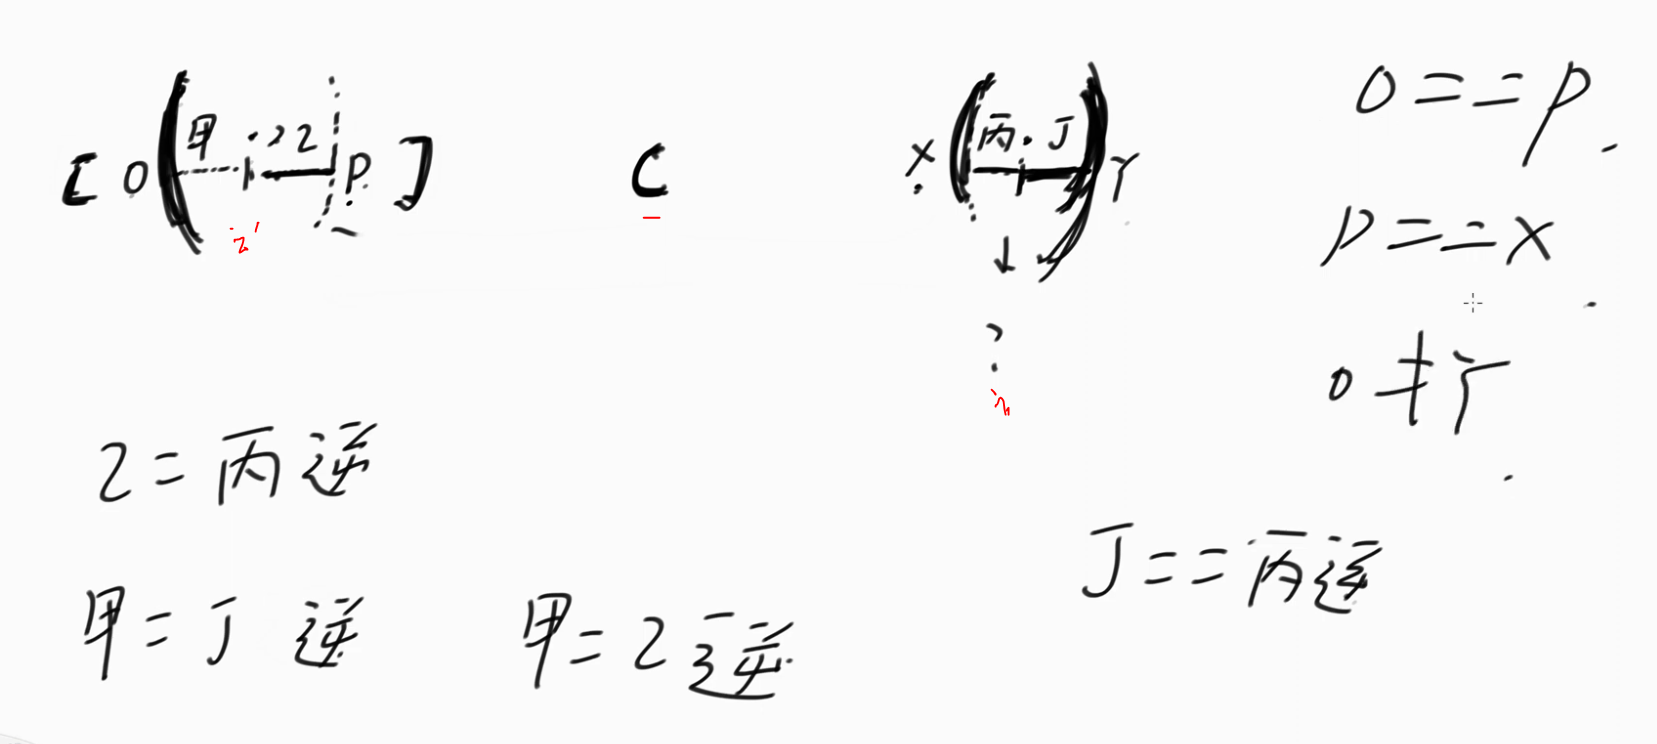 [ O ( 甲 · 乙 P ] C X ( 丙 · 丁 ) Y
O == P
P == X
O ≠ Y
乙 = 丙逆
甲 = 丁 逆
甲 = 乙逆
丁 == 丙逆